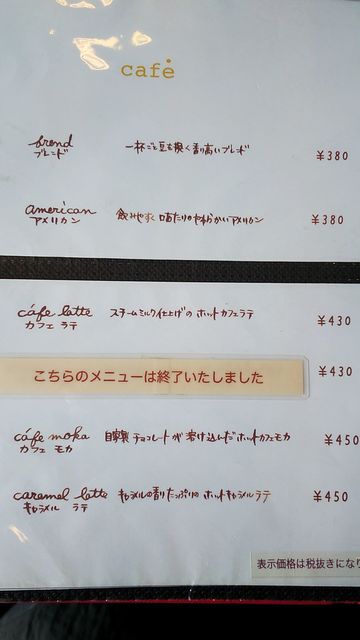 café
brend
ブレンド
一杯ごと豆を挽く香り高いブレンド
¥380
american
アメリカン
飲みやすく口当たりのやわらかいアメリカン
¥380
cáfe latte
カフェ ラテ
スチームミルク仕上げの ホットカフェラテ
¥430
こちらのメニューは終了いたしました
¥430
cáfe moka
カフェ モカ
自家製 チョコレートが 溶け込んだホットカフェモカ
¥450
caramel latte
キャラメル ラテ
キャラメルの香りたっぷりの ホットキャラメルラテ
¥450
表示価格は税抜きになり